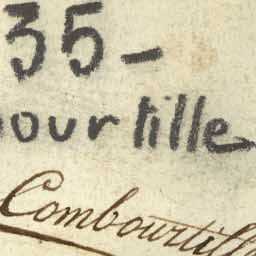 35-
ourtille
Combourtill